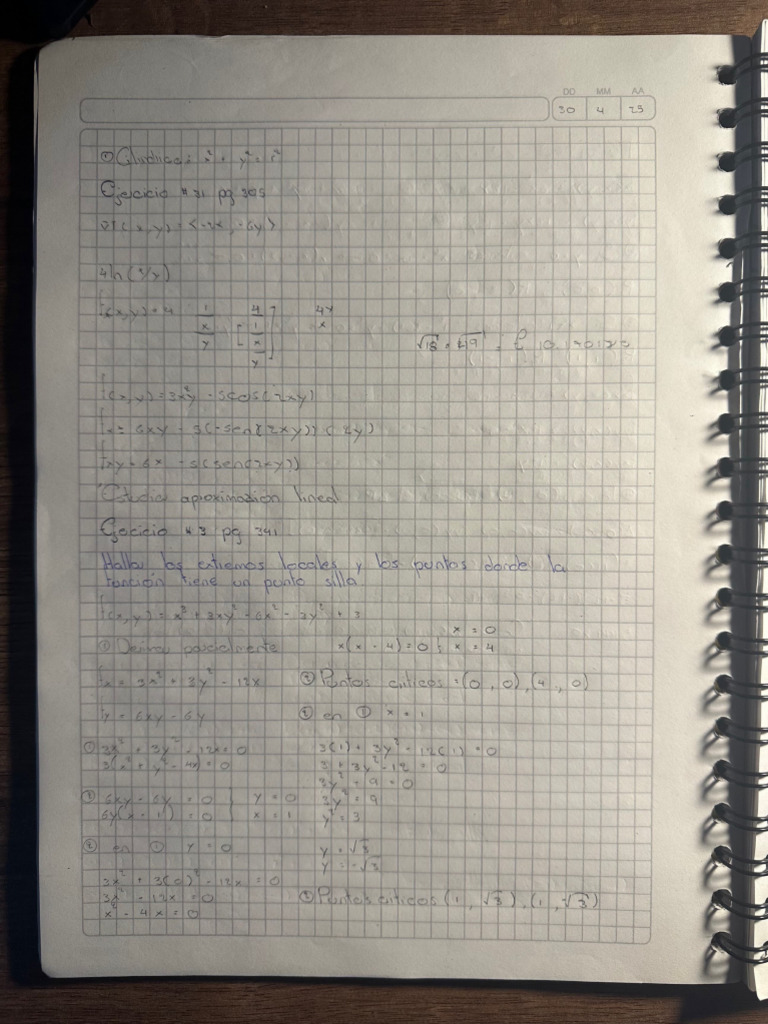 DD MM AA
30 4 23
Ejercicio #31 pg 305
4ln(x/y)
f(x,y) = 3x²y - 5cos(2xy)
fxy = 6x - 5(sen(2xy))
Estudia aproximación lineal
Ejecicio #3 pg 341
Halla los extremos locales y los puntos donde la
función tiene un punto silla.
f(x,y) = x³ + 3xy² - 6x² - 3y² + 3
① Derivar parcialmente
fx = 3x² + 3y² - 12x
fy = 6xy - 6y
① 3x² + 3y² - 12x = 0
3(x² + y² - 4x) = 0
② 6xy - 6y = 0 } y = 0
6y(x - 1) = 0 x = 1
② en ① y = 0
3x² + 3(0)² - 12x = 0
3x² - 12x = 0
x² - 4x = 0
x(x - 4) = 0 ; x = 0
x = 4
Puntos criticos = (0, 0), (4, 0)
② en ① x = 1
3(1) + 3y² - 12(1) = 0
3 + 3y² - 12 = 0
3y² - 9 = 0
3y² = 9
y² = 3
y = √3
y = -√3
Puntos criticos (1, √3), (1, -√3)